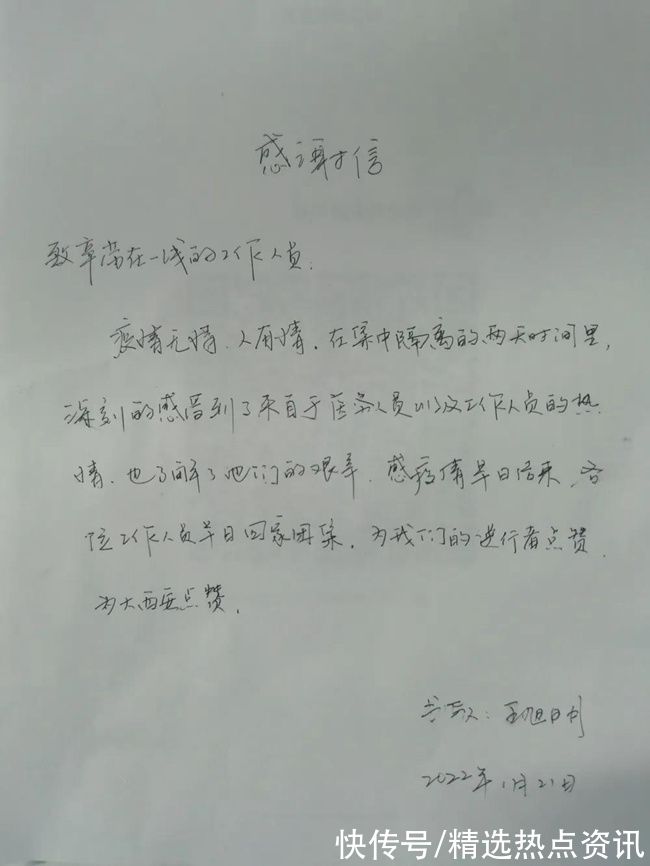 感谢信
致辛劳在一线的工作人员.
疫情无情、人有情,在集中隔离的两天时间里,
深刻的感受到了来自于医务人员以及工作人员的热
情、也了解了他们的艰辛.感疫情早日结束、各
位工作人员早日回家团聚,为我们的逆行者点赞.
为大西安点赞.
2022年1月21日
快传号/精选热点资讯